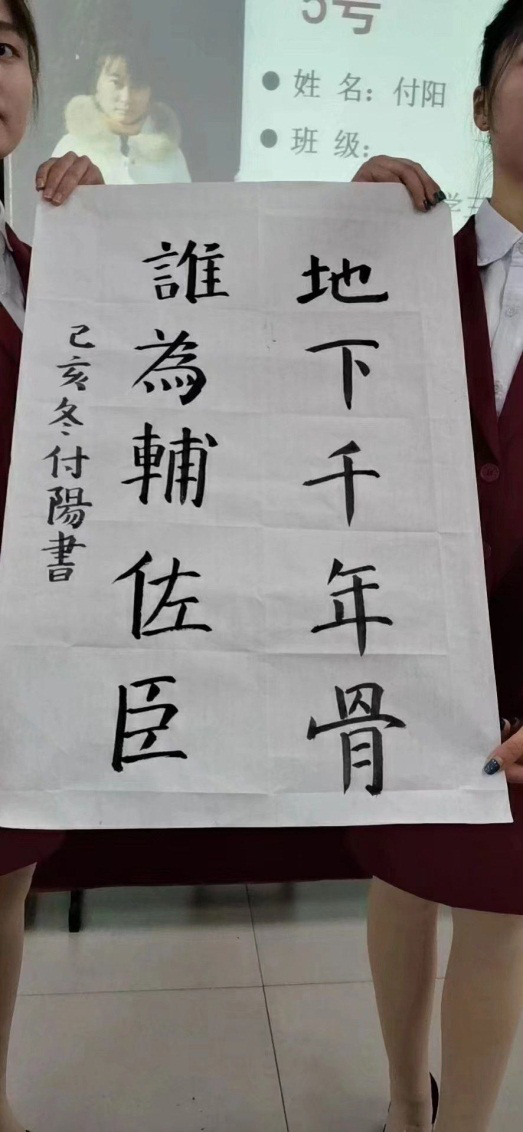 5号
● 姓 名：付阳
● 班 级：
地下千年骨
誰為輔佐臣
己亥冬付陽書